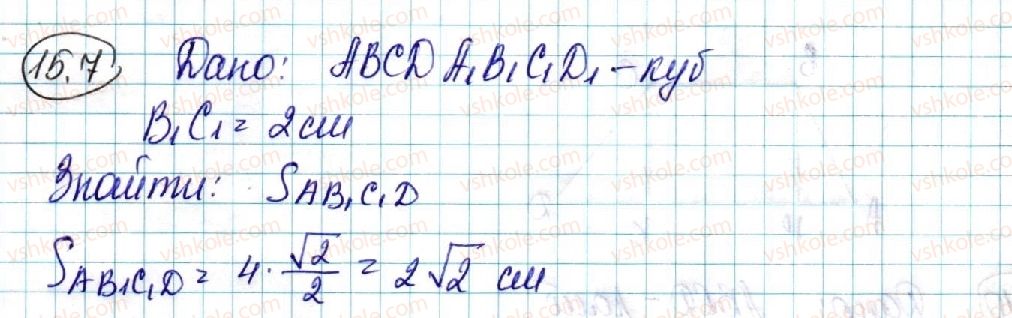 15.7 Дано: ABCDA₁B₁C₁D₁ – куб
B₁C₁ = 2 см
Знайти: S AB₁C₁D
S AB₁C₁D = 4 · √2/2 = 2√2 см